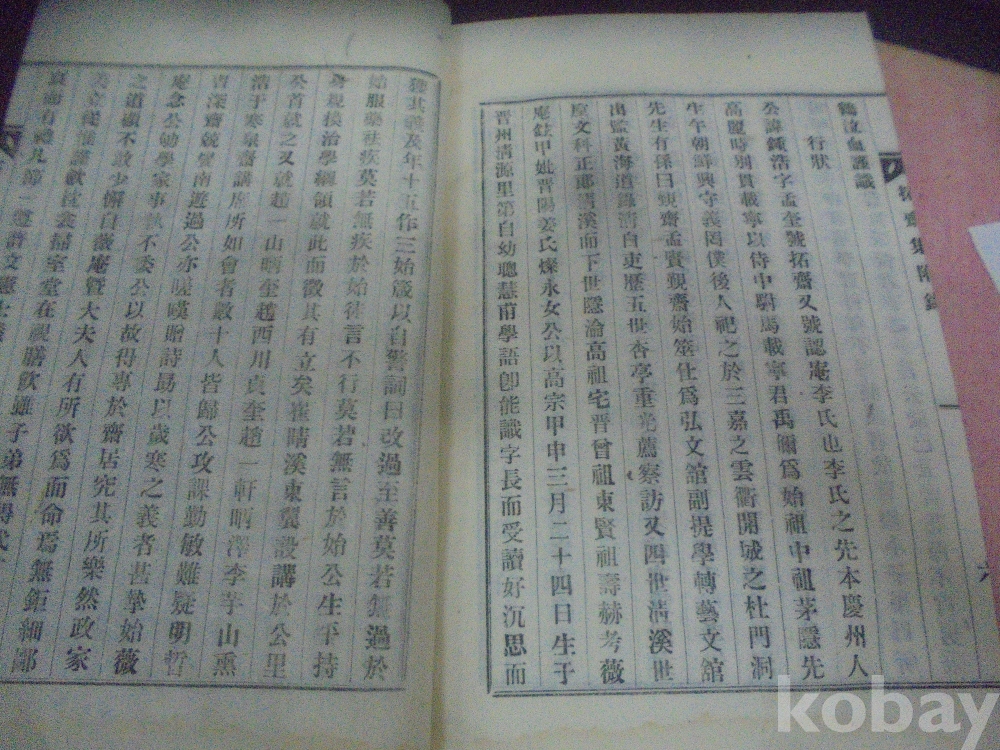 拓齋集附錄
六
鶴泣血謹識
行狀
公諱鍾浩字孟奎號拓齋又號認庵李氏也李氏之先本慶州人
高麗時別貫載寧以侍中駙馬載寧君禹偁爲始祖中祖茅隱先
生午朝鮮興守義罔僕後人祀之於三嘉之雲衢開城之杜門洞
先生有孫曰覲齋孟賢覲齋始筮仕爲弘文舘副提學轉藝文舘
出監黃海道錄淸白吏歷五世杏亭重光薦察訪又四世淸溪世
文科正郎淸溪而下世隱淪高祖宅晋曾祖東賢祖壽赫考薇
庵鉉甲妣晋陽姜氏燦永女公以高宗甲申三月二十四日生于
晋州淸源里第自幼聰慧甫學語卽能識字長而受讀好沉思而
其義及年十五作三始箴以自警詞曰改過至善莫若無過於
始服藥祛疾莫若無疾於始徒言不行莫若無言於始公生平持
身規模治學綱領就此而徵其有立矣崔晴溪東翼設講於公里
公首就之又就趙一山昞奎趙西川貞奎趙一軒昞澤李芋山熏
浩于寒泉齋講席所如會者數十人皆歸公攻課勤敏難疑明晢
霽兢 南遊過公亦嗟嘆贈詩勗以歲寒之義者甚摯始薇
庵念公劬學家事執不委公以故得專於齋居究其所樂然政家
之道頗不敢少懈自薇庵曁大夫人有所欲爲而命焉無鉅細鄙
美立從惟謹獻 裘掃室堂在視膳飮雖子弟無得代
哀而有禮凡節一遵